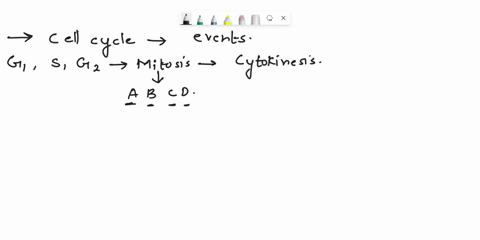 → Cell cycle → events.
G₁, S, G₂ → Mitosis → Cytokinesis.
↓
A B C D.